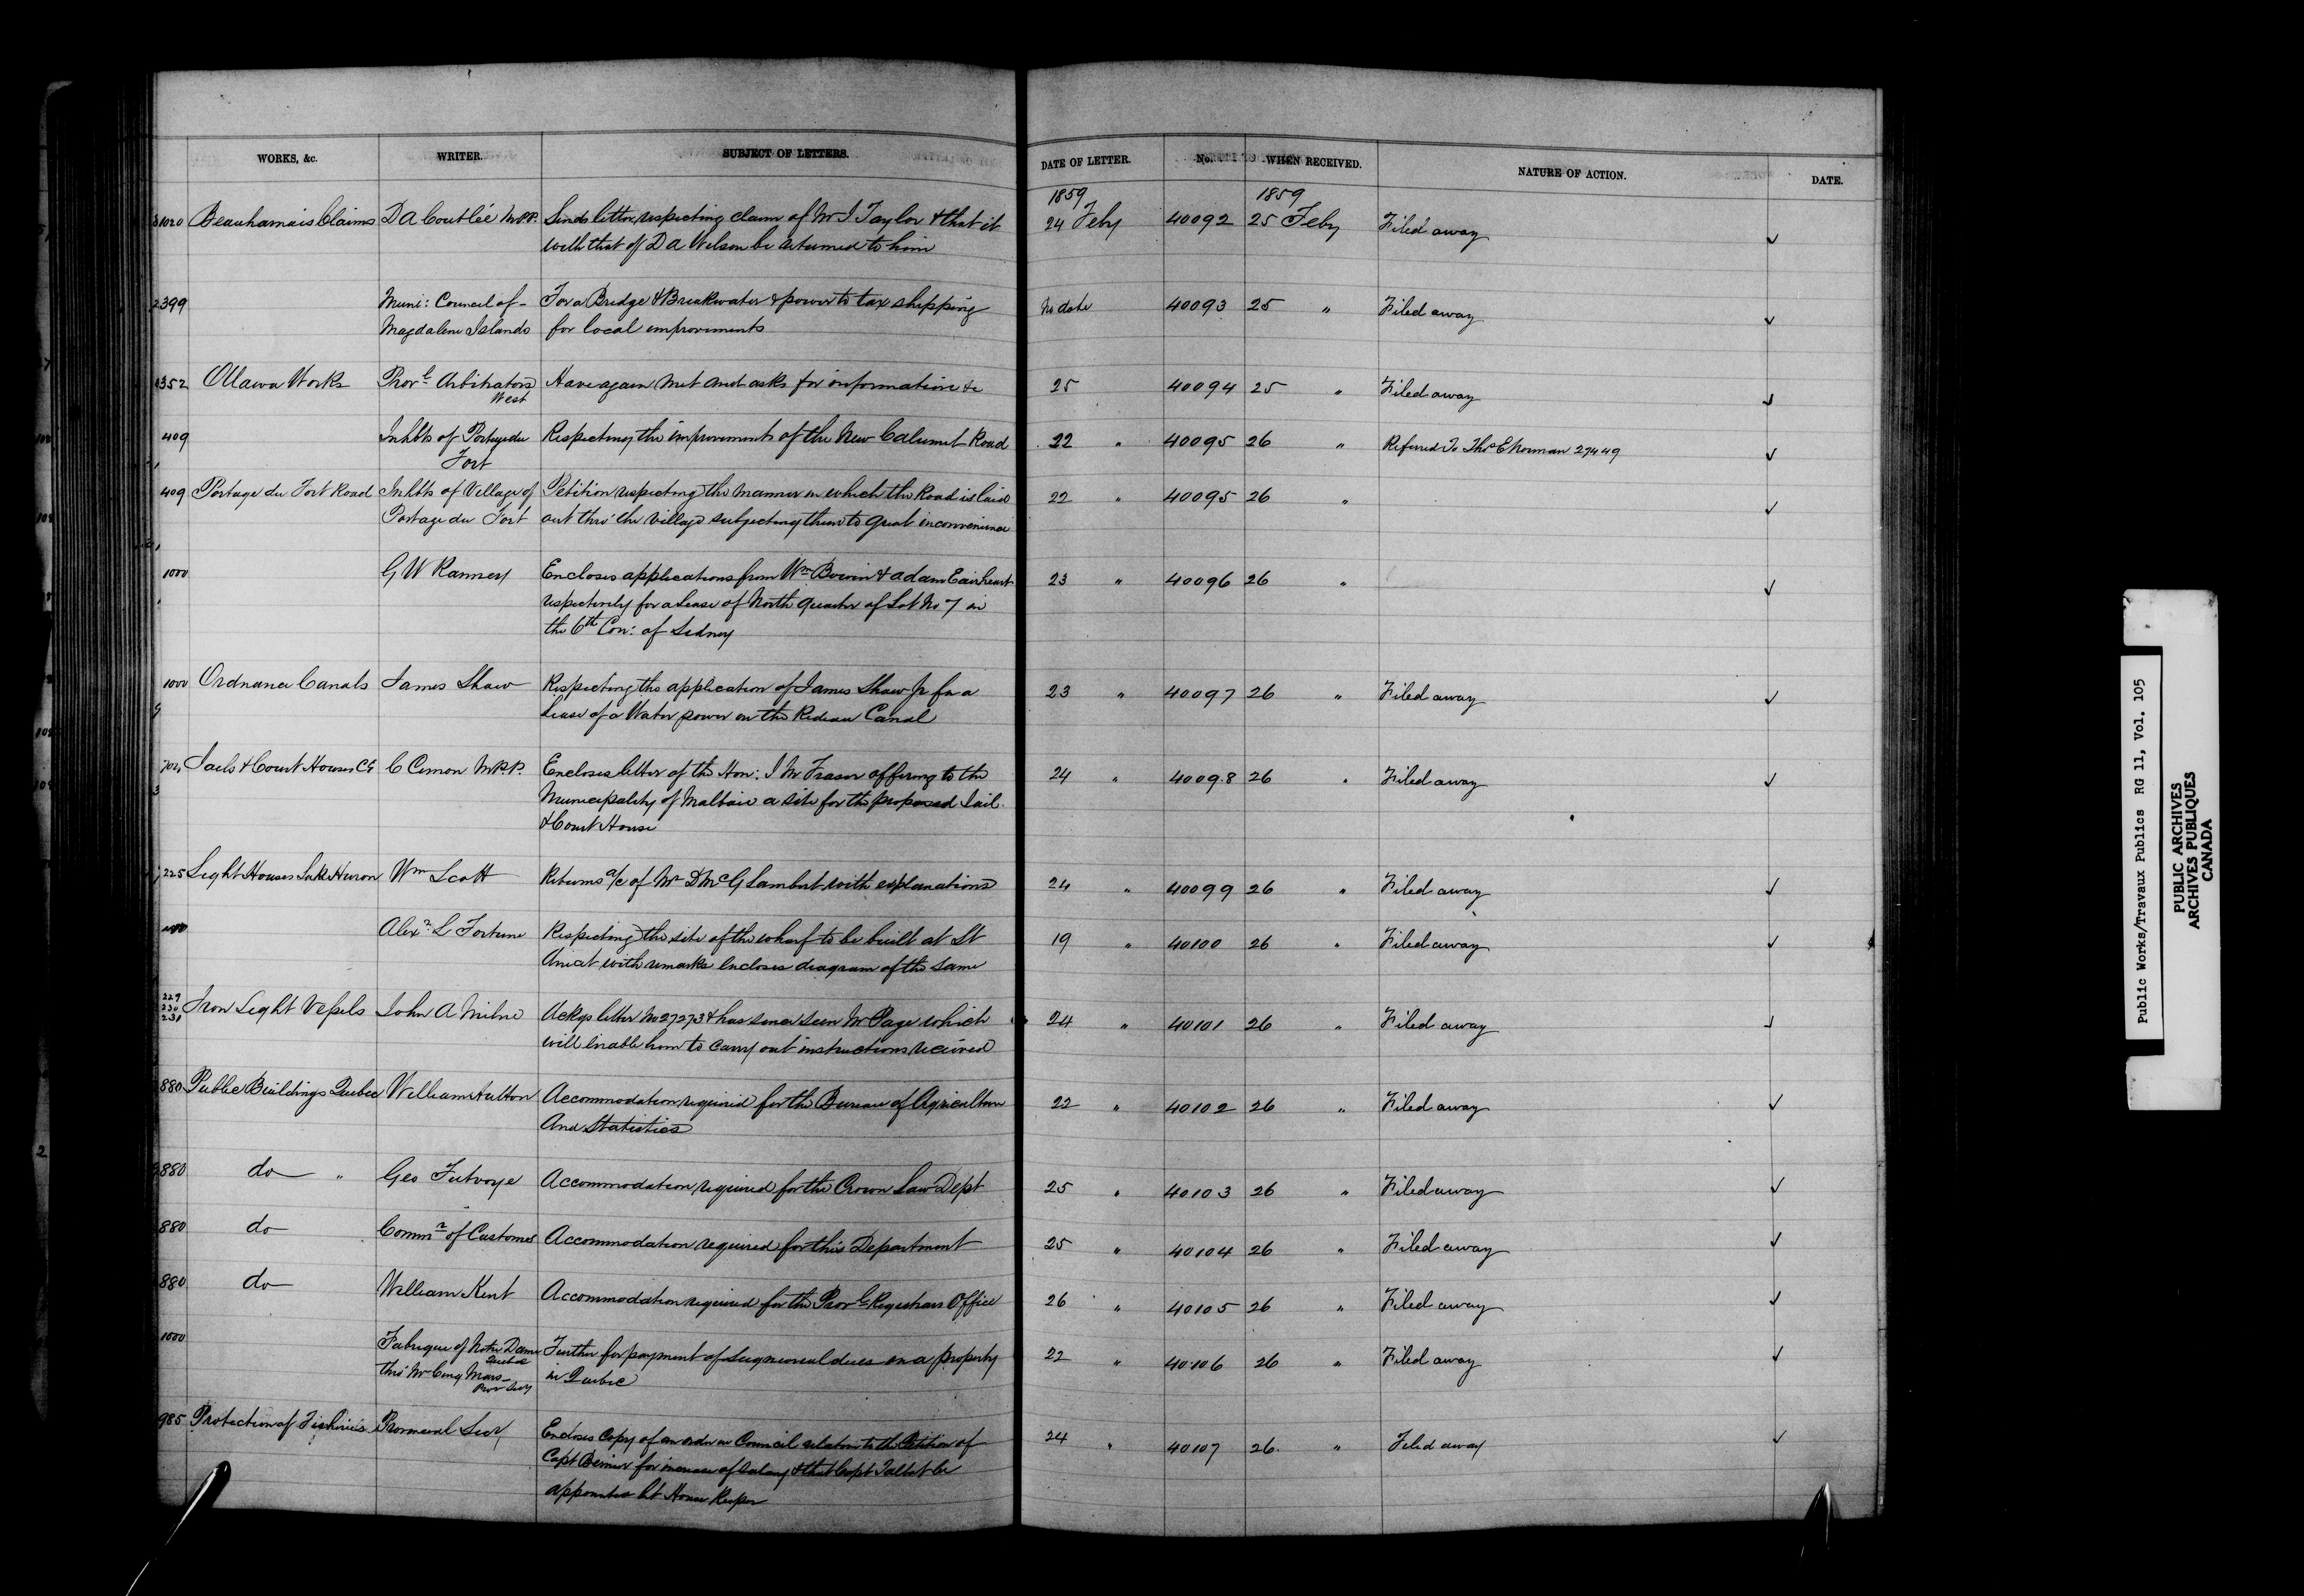 WORKS, &c. WRITER. SUBJECT OF LETTERS. DATE OF LETTER. No. WHEN RECEIVED. NATURE OF ACTION. DATE.
1859 1859
1020 Beauharnais Claims D A Coutlée M.P.P. Sends letter, respecting claim of Mr J Taylor & that it 24 Feby 40092 25 Feby Filed away ✓
with that of D A Wilson be returned to him
2399 Muni: Council of For a Bridge & Breakwater & power to tax shipping No date 40093 25 " Filed away ✓
Magdalene Islands for local improvements
352 Ottawa Works Provl Arbitrators Have again met and asks for information &c 25 40094 25 " Filed away ✓
West
409 Inhbts of Portage du Respecting the improvements of the New Calumet Road 22 " 40095 26 " Referred To Thos E Norman 27449 ✓
Fort
409 Portage du Fort Road Inhbts of Village of Petition respecting the manner in which the Road is laid 22 " 40095 26 " ✓
Portage du Fort out thro' the village subjecting them to great inconvenience
1000 G W Ranney Encloses applications from Wm Bowin & Adam Eairheart 23 " 40096 26 " ✓
respectively for a Lease of North quarter of Lot No 7 in
the 6th Con: of Sidney
1000 Ordnance Canals James Shaw Respecting the application of James Shaw Jr for a 23 " 40097 26 " Filed away ✓
Lease of a Water power on the Rideau Canal
Jails & Court Houses C.E C Cimon M.P.P. Encloses letter of the Hon: J M Fraser offering to the 24 " 40098 26 " Filed away ✓
Municipality of Malbaie a site for the proposed Jail
& Court House
225 Light Houses Lake Huron Wm Scott Returns a/c of Mr D McG Lambert with explanations 24 " 40099 26 " Filed away ✓
Alexr L Fortune Respecting the site of the wharf to be built at St 19 " 40100 26 " Filed away ✓
Anicet with remarks encloses diagram of the same
229
230
231 Iron Light Vessels John A Milne Ackgs letter No 27273 & has since seen Mr Page which 24 " 40101 26 " Filed away ✓
will enable him to carry out instructions received
880 Public Buildings Quebec William Hutton Accommodation required for the Bureau of Agriculture 22 " 40102 26 " Filed away ✓
And Statistics
880 do " Geo Futvoye Accommodation required for the Crown Law Dept 25 " 40103 26 " Filed away ✓
880 do Commr of Customs Accommodation required for this Department 25 " 40104 26 " Filed away ✓
880 do William Kent Accommodation required for the Provl Registrars Office 26 " 40105 26 " Filed away ✓
1000 Fabrique of Notre Dame Further for payment of Seigneurial dues on a property 22 " 40106 26 " Filed away ✓
Quebec
thro' Mr Cinq Mars in Quebec
Prov Secy
985 Protection of Fisheries Provincial Secy Encloses Copy of an order in Council relative to the Petition of 24 " 40107 26 " Filed away ✓
Capt Bernier for increase of salary & that Capt Talbot be
appointed Lt House Keeper
Public Works/Travaux Publics RG 11, Vol. 105
PUBLIC ARCHIVES
ARCHIVES PUBLIQUES
CANADA